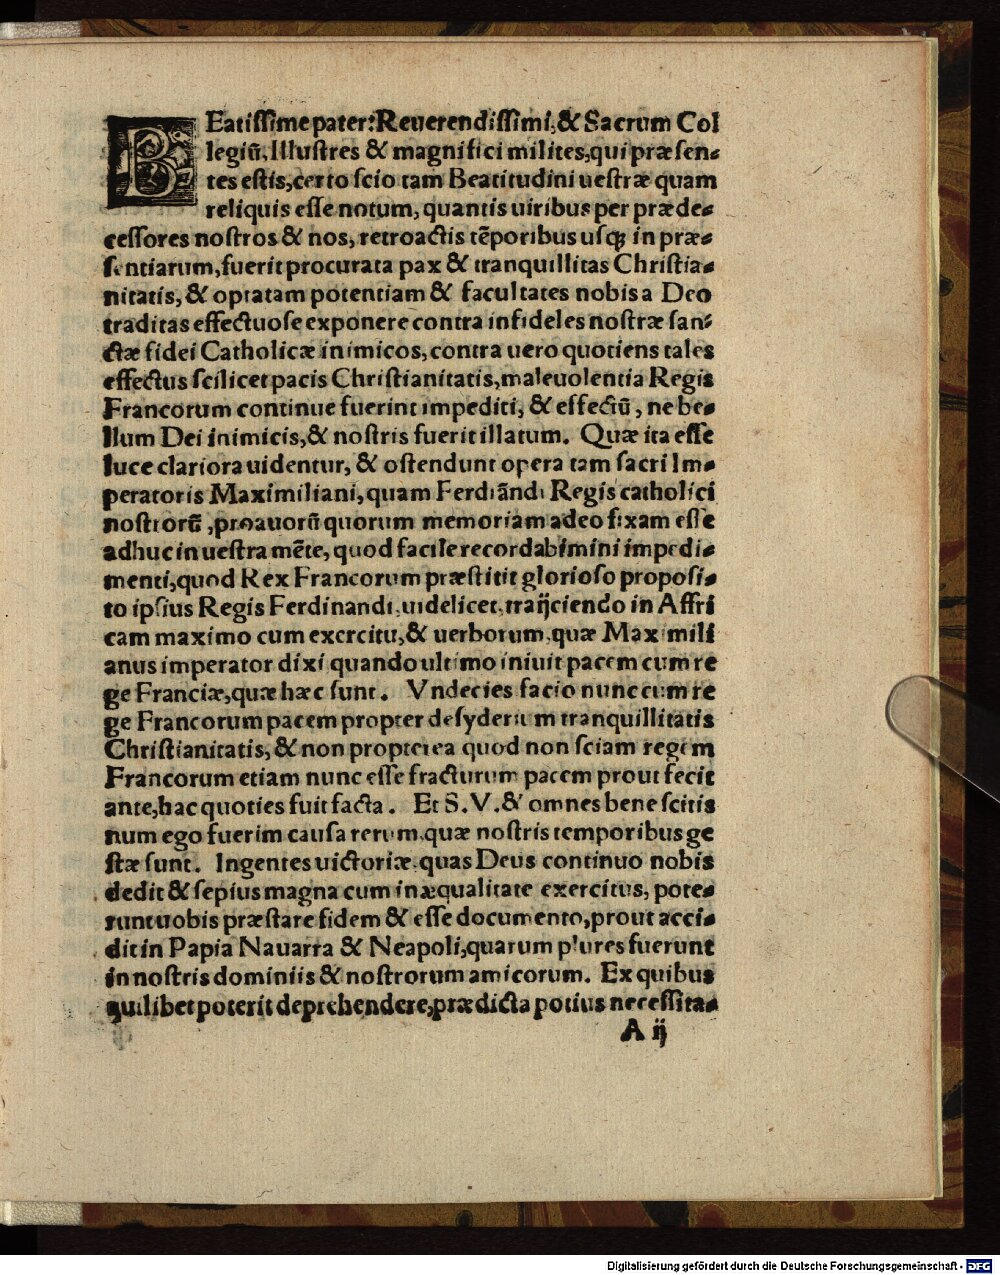 BEatissime pater: Reuerendissimi, & Sacrum Col
legiū, Illustres & magnifici milites, qui præsen-
tes estis, certo scio tam Beatitudini uestræ quam
reliquis esse notum, quantis uiribus per præde-
cessores nostros & nos, retroactis tēporibus usq; in præ-
sentiarum, fuerit procurata pax & tranquillitas Christia-
nitatis, & optatam potentiam & facultates nobis a Deo
traditas effectuose exponere contra infideles nostræ san-
ctæ fidei Catholicæ inimicos, contra uero quotiens tales
effectus scilicet pacis Christianitatis, maleuolentia Regis
Francorum continue fuerint impediti, & effectū, ne be-
llum Dei inimicis, & nostris fuerit illatum. Quæ ita esse
luce clariora uidentur, & ostendunt opera tam sacri Im-
peratoris Maximiliani, quam Ferdiāndi Regis catholici
nostrorū, proauorū quorum memoriam adeo fixam esse
adhuc in uestra mēte, quod facile recordabimini impedi-
menti, quod Rex Francorum præstitit glorioso proposi-
to ipsius Regis Ferdinandi, uidelicet, traijciendo in Affri
cam maximo cum exercitu, & uerborum, quæ Maximili
anus imperator dixi quando ultimo iniuit pacem cum re
ge Franciæ, quæ hæc sunt. Vndecies facio nunc cum re
ge Francorum pacem propter desyderium tranquillitatis
Christianitatis, & non propterea quod non sciam regem
Francorum etiam nunc esse fracturum pacem prout fecit
ante, hac quoties fuit facta. Et S. V. & omnes bene scitis
num ego fuerim causa rerum, quæ nostris temporibus ge
stæ sunt. Ingentes uictoriæ quas Deus continuo nobis
dedit & sepius magna cum inæqualitate exercitus, pote-
runt uobis præstare fidem & esse documento, prout acci-
dit in Papia Nauarra & Neapoli, quarum plures fuerunt
in nostris dominiis & nostrorum amicorum. Ex quibus
quilibet poterit deprehendere, prædicta potius necessita-
A ij
Digitalisierung gefördert durch die Deutsche Forschungsgemeinschaft - DFG